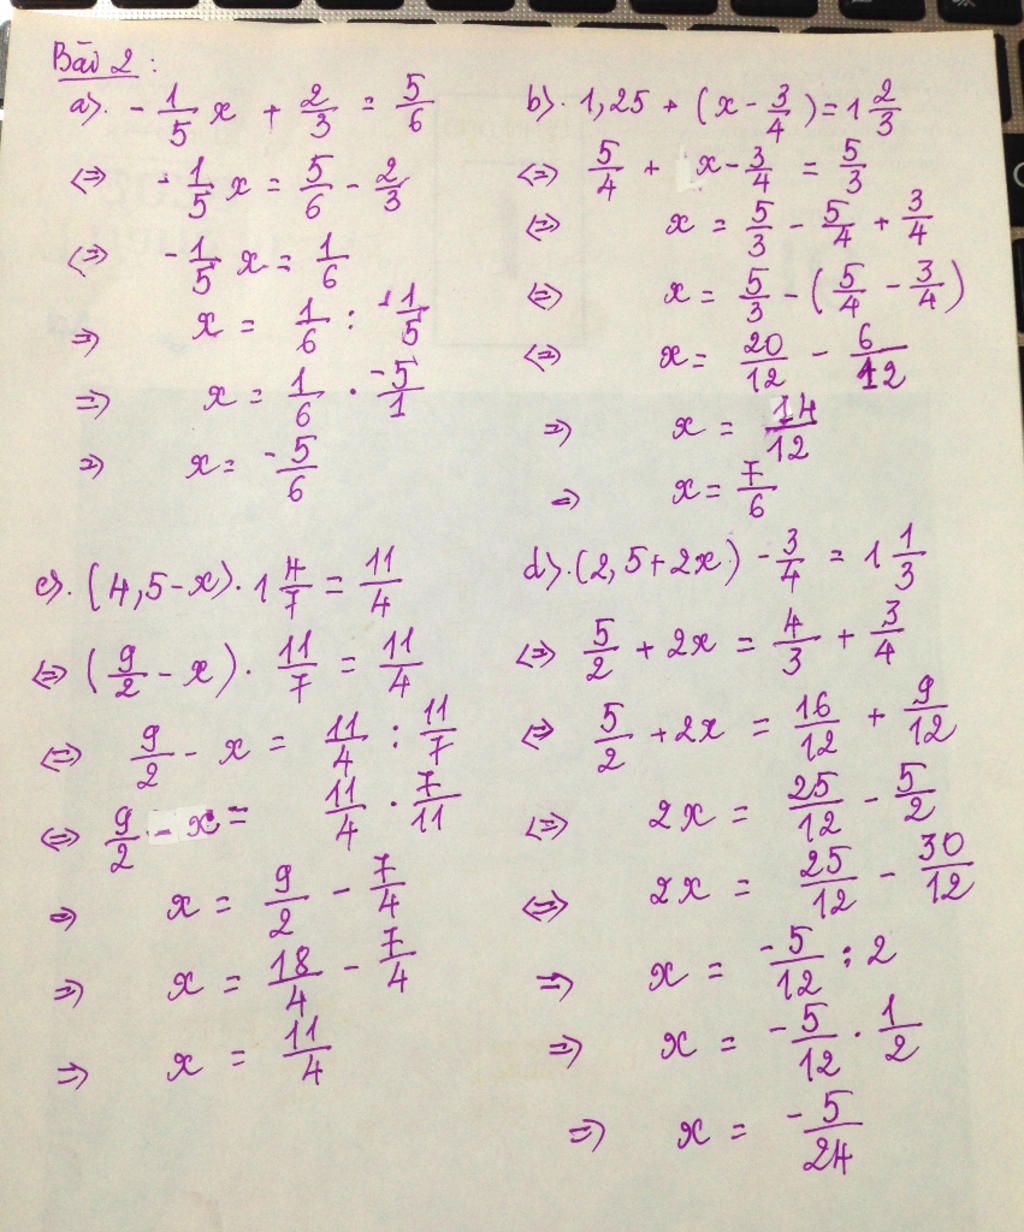 Bài 2:
a). -1/5 x + 2/3 = 5/6
⇔ -1/5 x = 5/6 - 2/3
⇔ -1/5 x = 1/6
⇒ x = 1/6 : -1/5
⇒ x = 1/6 . -5/1
⇒ x = -5/6
b). 1,25 + (x - 3/4) = 1 2/3
⇔ 5/4 + x - 3/4 = 5/3
⇔ x = 5/3 - 5/4 + 3/4
⇔ x = 5/3 - (5/4 - 3/4)
⇔ x = 20/12 - 6/12
⇒ x = 14/12
⇒ x = 7/6
c). (4,5 - x) . 1 4/7 = 11/4
⇔ (9/2 - x) . 11/7 = 11/4
⇔ 9/2 - x = 11/4 : 11/7
⇔ 9/2 - x = 11/4 . 7/11
⇒ x = 9/2 - 7/4
⇒ x = 18/4 - 7/4
⇒ x = 11/4
d). (2,5 + 2x) - 3/4 = 1 1/3
⇔ 5/2 + 2x = 4/3 + 3/4
⇔ 5/2 + 2x = 16/12 + 9/12
⇔ 2x = 25/12 - 5/2
⇔ 2x = 25/12 - 30/12
⇒ x = -5/12 : 2
⇒ x = -5/12 . 1/2
⇒ x = -5/24